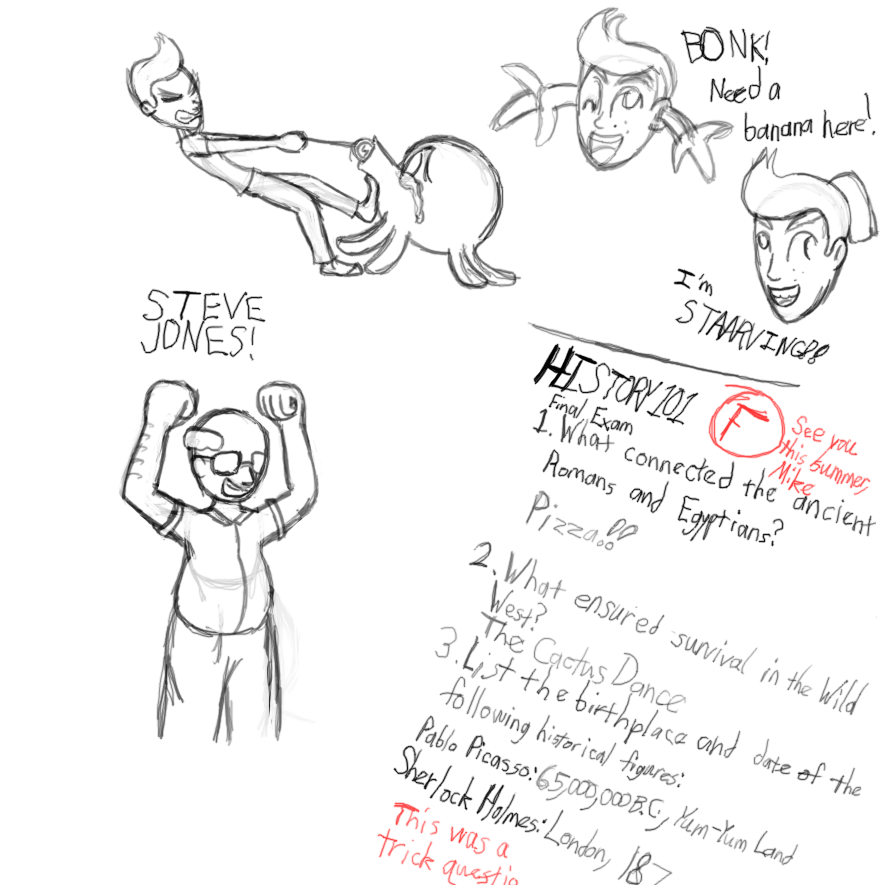 BONK!
Need a
banana here!
I'm
STAARVING!!
STEVE
JONES!
HISTORY 101
Final Exam
F
See you
this summer,
Mike
1. What connected the ancient
Romans and Egyptians?
Pizza!!
2. What ensured survival in the Wild
West?
The Cactus Dance
3. List the birthplace and date of the
following historical figures:
Pablo Picasso: 65,000,000 B.C., Yum-Yum Land
Sherlock Holmes: London, 187
This was a
trick questio